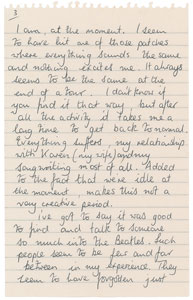 3
I am, at the moment. I seem
to have hit one of those patches
where everything sounds the same
and nothing excites me. It always
seems to be the same at the
end of a tour. I don't know if
you find it that way, but after
all the activity it takes me a
long time to get back to normal.
Everything suffers, my relationship
with Karen (my wife) and my
songwriting most of all. Added
to the fact that were idle at
the moment, makes this not a
very creative period.
I've got to say it was good
to find and talk to someone
so much into the Beatles. Such
people seem to be few and far
between in my experience. They
seem to have forgotten just